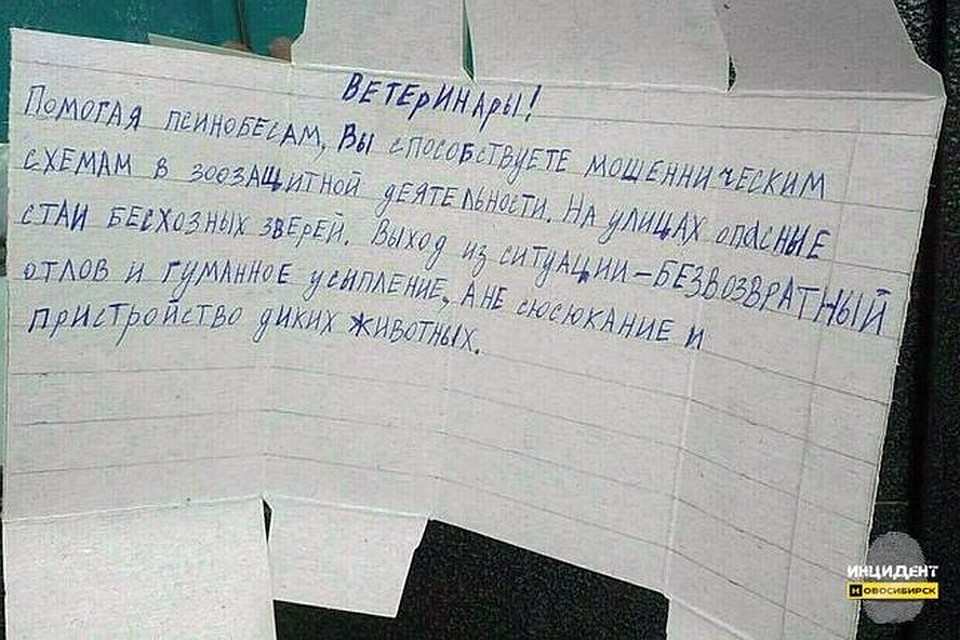 ВЕТЕРИНАРЫ!
ПОМОГАЯ ПСИНОБЕСАМ, ВЫ СПОСОБСТВУЕТЕ МОШЕННИЧЕСКИМ
СХЕМАМ В ЗООЗАЩИТНОЙ ДЕЯТЕЛЬНОСТИ. НА УЛИЦАХ ОПАСНЫЕ
СТАИ БЕСХОЗНЫХ ЗВЕРЕЙ. ВЫХОД ИЗ СИТУАЦИИ – БЕЗВОЗВРАТНЫЙ
ОТЛОВ И ГУМАННОЕ УСЫПЛЕНИЕ, А НЕ СЮСЮКАНИЕ И
ПРИСТРОЙСТВО ДИКИХ ЖИВОТНЫХ.
ИНЦИДЕНТ
НОВОСИБИРСК